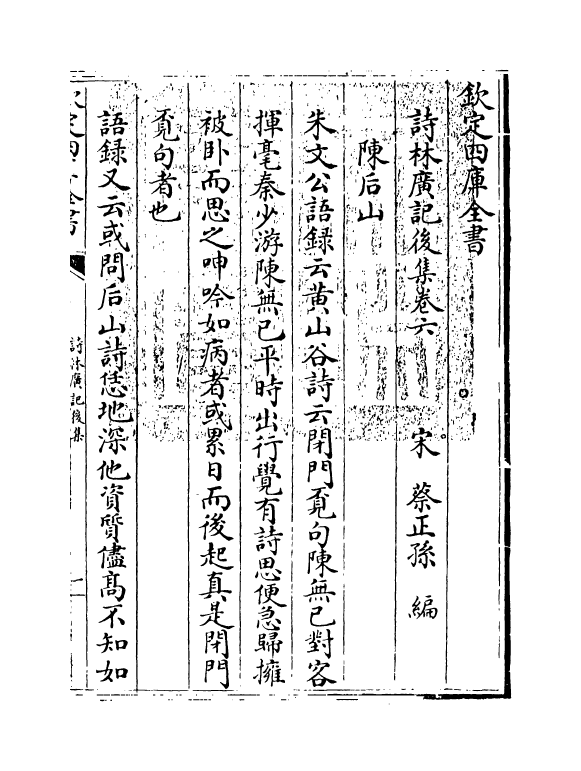 欽定四庫全書
詩林廣記後集卷六
宋 蔡正孫 編
陳后山
朱文公語録云黄山谷詩云閉門覓句陳無已對客
揮毫秦少游陳無已平時出行覺有詩思便急歸擁
被卧而思之呻吟如病者或累日而後起真是閉門
覓句者也
語録又云或問后山詩恁地深他資質儘髙不知如
欽定四庫全書
詩林廣記後集
一